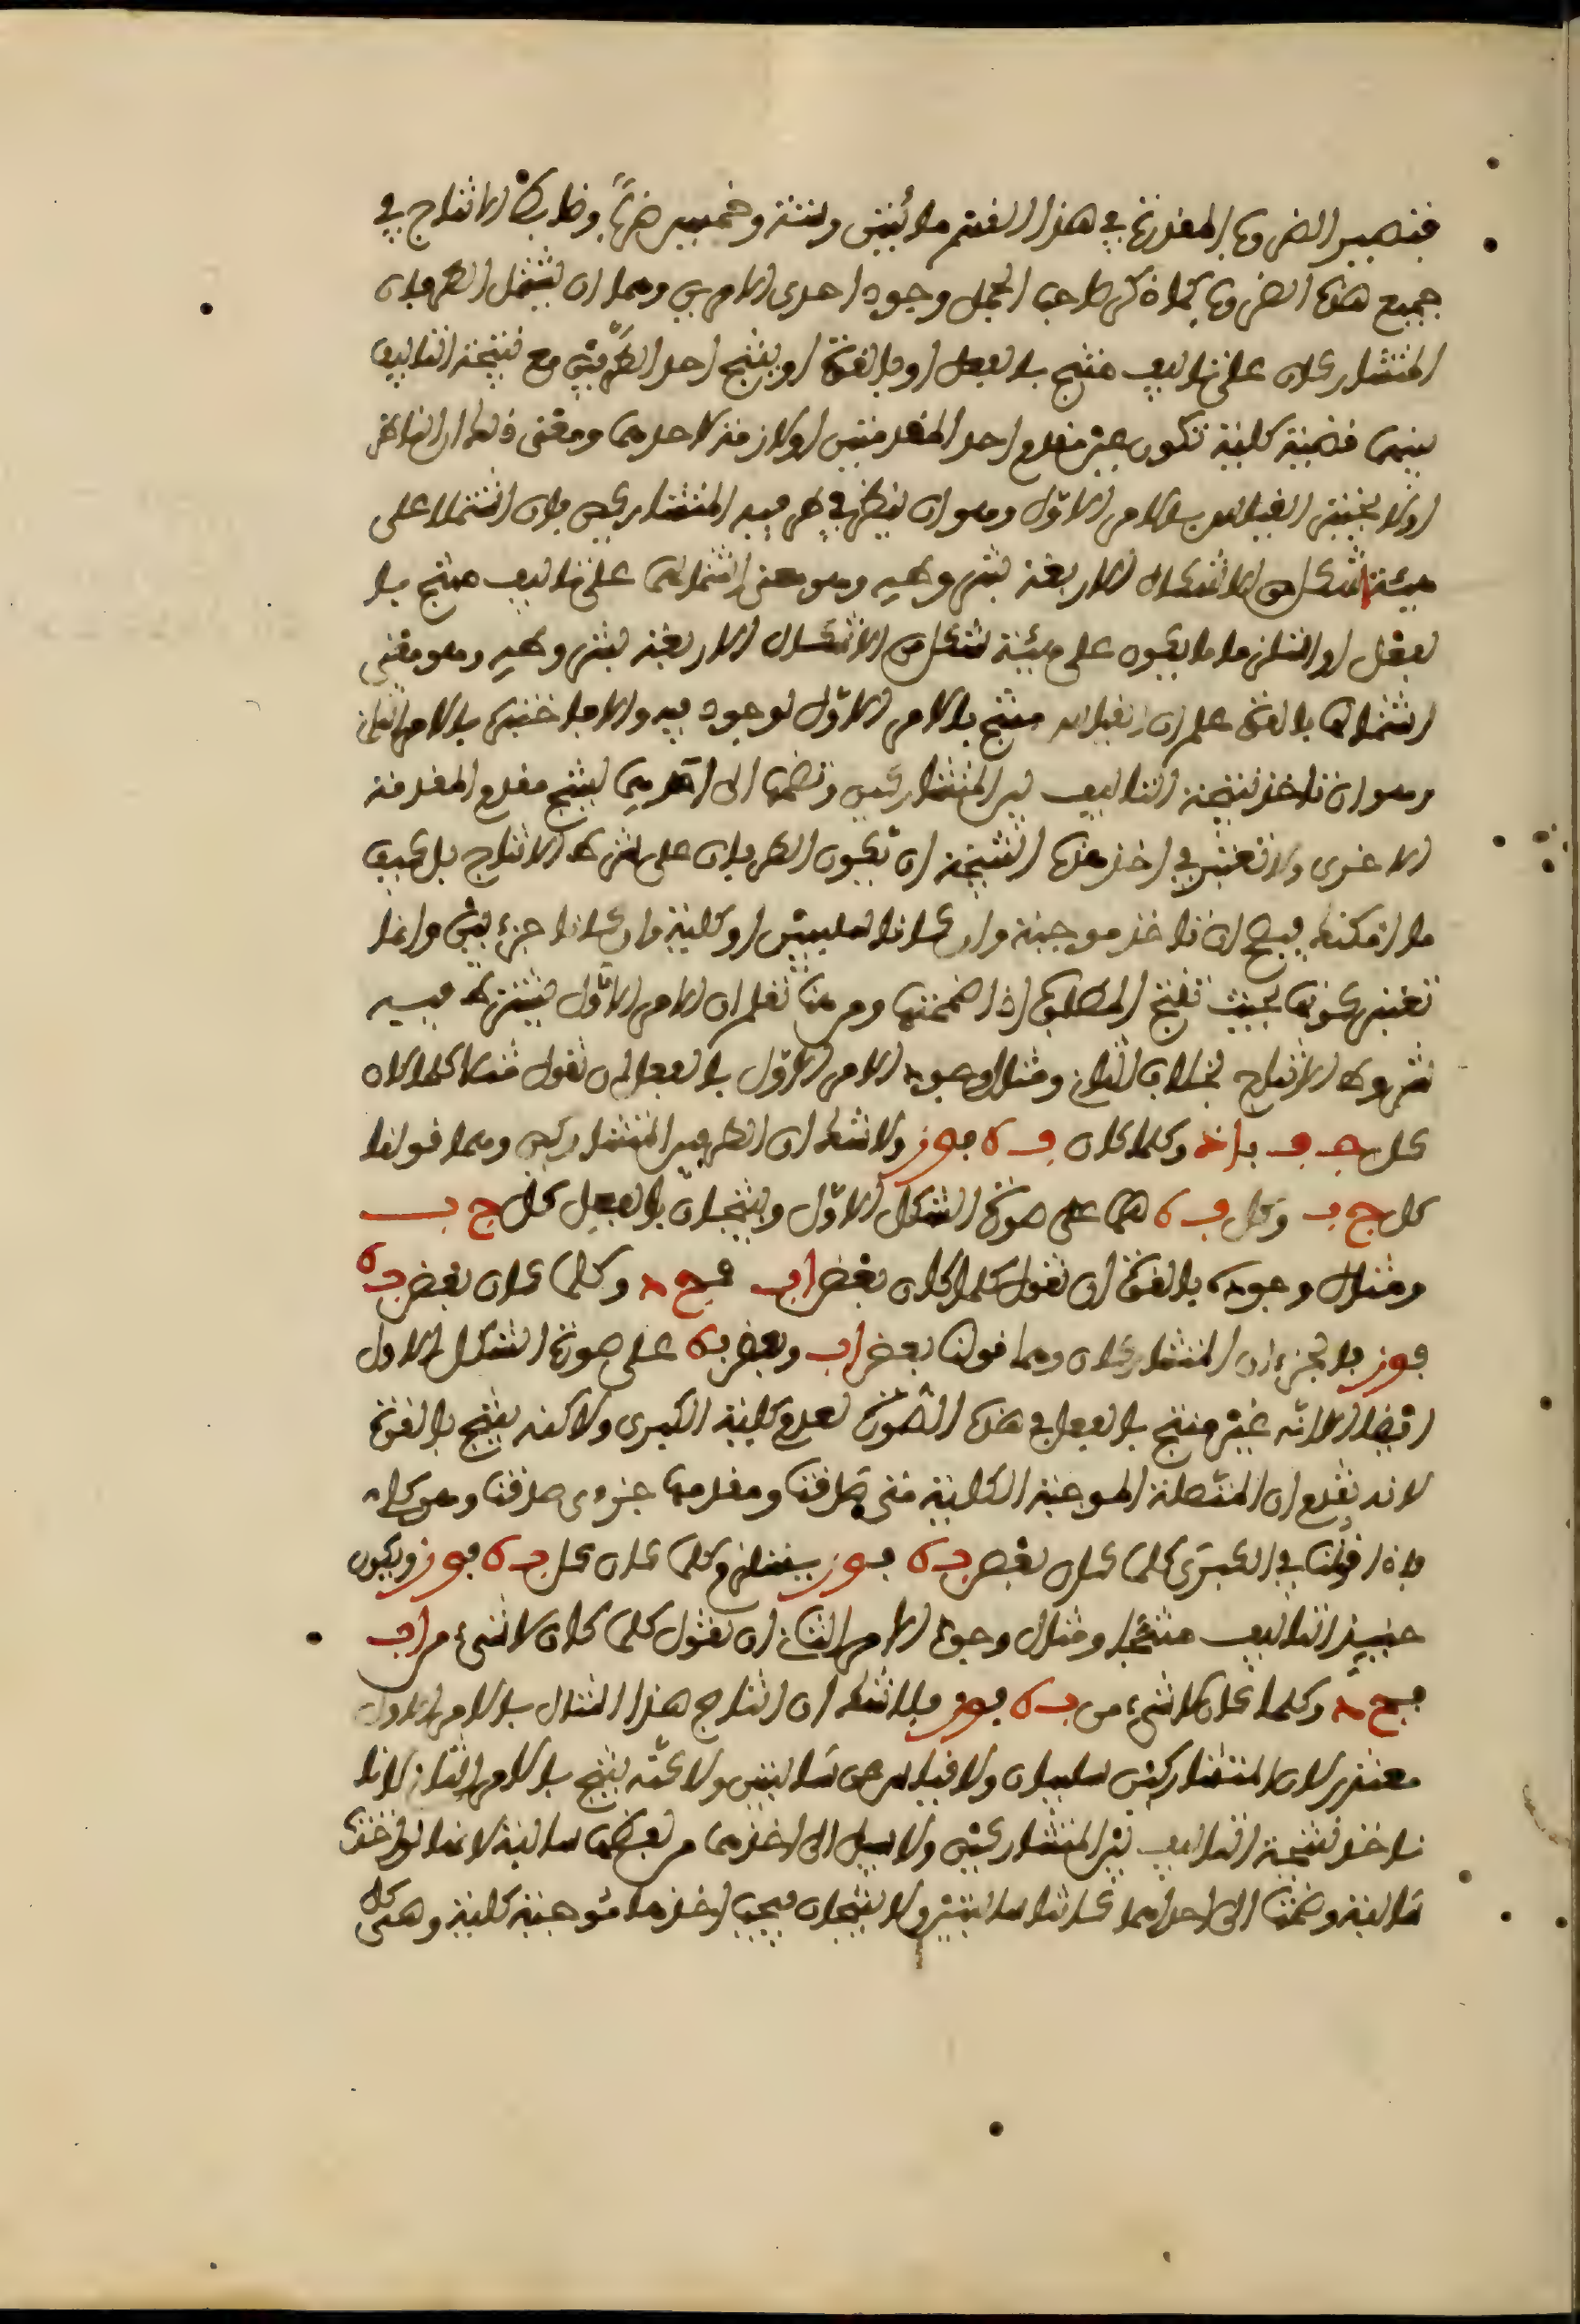 فتصير الضروب المقدرة في هذا القسم مائتين وستة وخمسين ضربا وضابط الانتاج في
جميع هذه الضروب كما ذكر صاحب الجمل وجود احدى الامرين وهما ان يشتمل الطرفان
المتشاركان على تاليف منتج بالفعل او بالقوة او ينتج احد الطرفين مع نتيجة التاليف
بينهما قضية كلية تكون عين مقدم احد المقدمتين او لازمة لاحدهما ومعنى ذلك ان الناظر
اولا يختبر القياس بالامر الاول وهو ان ينظر في طرفيه المتشاركين فان اشتملا على
هيئة شكل من الاشكال الاربعة بشروطه وهو معنى اشتمالهما على تاليف منتج با
لفعل او استلزما ما يكون على هيئة شكل من الاشكال الاربعة بشروطه وهو معنى
اشتمالهما بالقوة علم ان القياس منتج بالامر الاول لوجوده فيه والا فاختبره بالامر الثاني
وهو ان تاخذ نتيجة التاليف بين المتشاركين وتضمها الى احدهما لينتج مقدم المقدمة
الاخرى ولا تعتبر في اخذ هذه النتيجة ان يكون الطرفان على شرط الانتاج بل كيف
ما امكنك فيصح ان تاخذ موجبة وان كانتا سالبتين او كلية وان كانتا جزءيتين وانما
تعتبر كونها بحيث تنتج المطلوب اذا ضممتها ومن هنا تعلم ان الامر الاول يشترط فيه
شروط الانتاج بخلاف الثاني ومثال وجود الامر الاول بالفعل ان تقول مثلا كلما كان
كل ج ب فا د وكلما كان ب ه فوز ولا شك ان الطرفين المتشاركين وهما قولنا
كل ج ب وكل ب ه هما على صورة الشكل الاول وينتجان بالفعل كل ج ب
ومثال وجوده بالقوة ان تقول كلما كان بعض اب فج د وكلما كان بعض ب ه
فوز فالجزءان المتشاركان وهما قولنا بعض اب وبعض ب ه على صورة الشكل الاول
ايضا الا انه غير منتج بالفعل في هذه الصورة لعدم كلية الكبرى ولاكنه ينتج بالقوة
لانه تقدم ان المتصلة الموجبة الكلية متى صدقت ومقدمها جزءي صدقت وهو كلي
فاذا قولنا في الكبرى كلما كان بعض ب ه فوز يستلزم كلما كان كل ب ه فوز ويكون
حينيذ التاليف منتجا ومثال وجود الامر الثاني ان تقول كلما كان لا شيء من اب
فج د وكلما كان لا شيء من ب ه فوز فلا شك ان انتاج هذا المثال بالامر الاول
متعذر لان المتشاركين سالبان ولا قياس من سالبتين ولاكنه ينتج بالامر الثاني لانا
ناخذ نتيجة التاليف بين المتشاركين ولا سبيل الى اخذها من بعضهما سالبة لانها لو اخذت
سالبة وضمت الى احداهما كانتا سالبتين ولا ينتجان فيجب اخذها موجبة كلية وهي كل